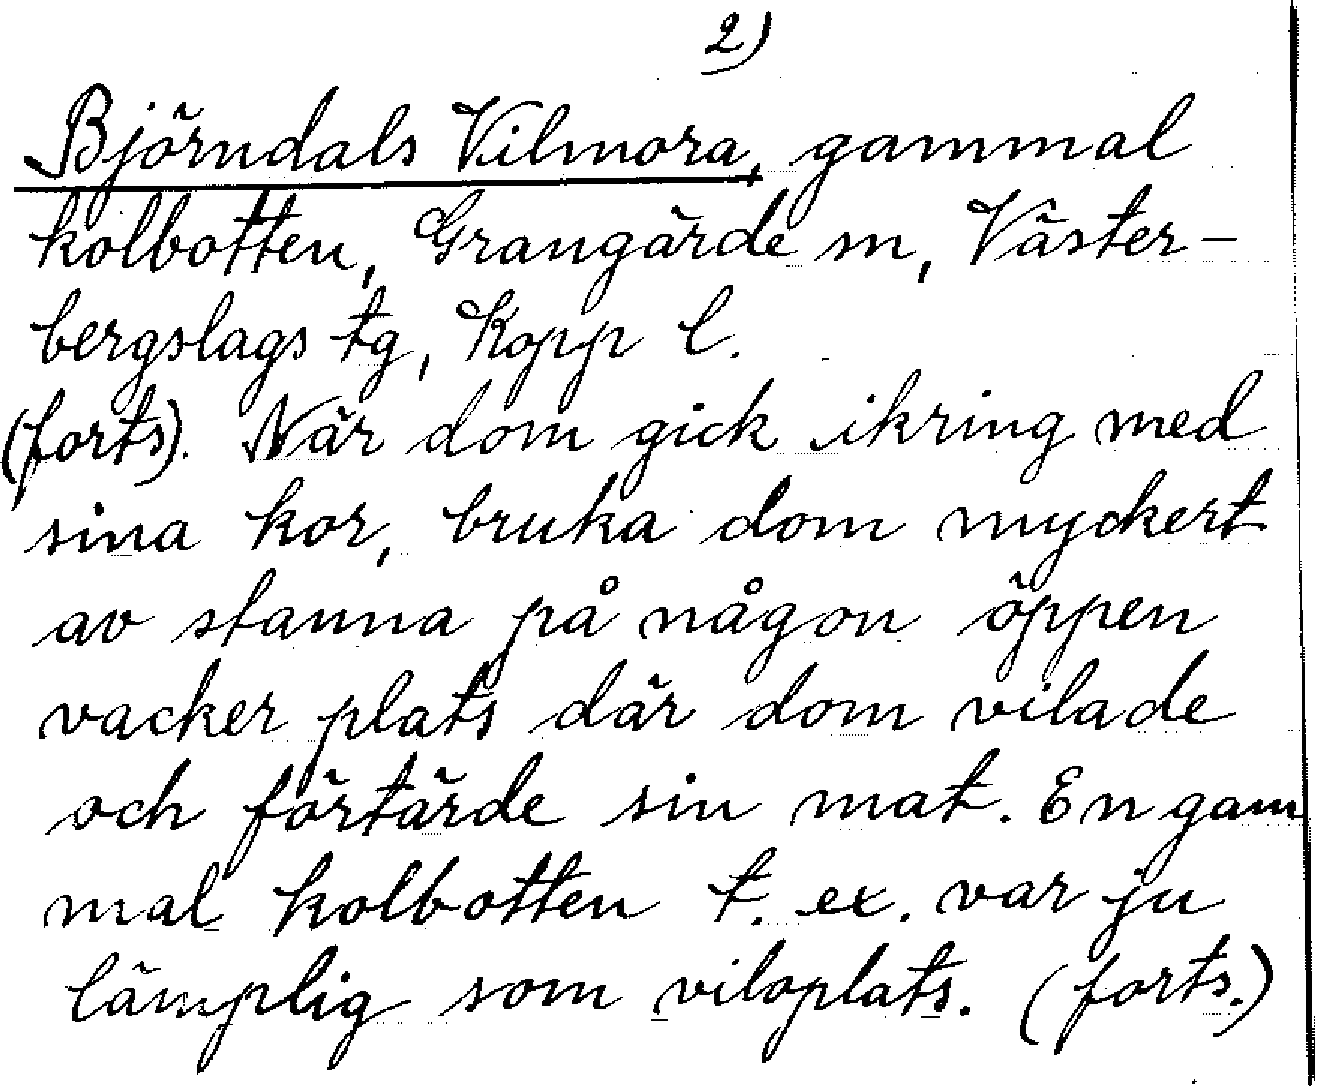 2)
Björndals Vilmora, gammal
kolbotten, Grangärde sn, Väster-
bergslags tg, Kopp l.
(forts). När dom gick ikring med
sina kor, bruka dom myckert
av stanna på någon öppen
vacker plats där dom vilade
och förtärde sin mat. En gam
mal kolbotten t. ex. var ju
lämplig som viloplats. (forts.)